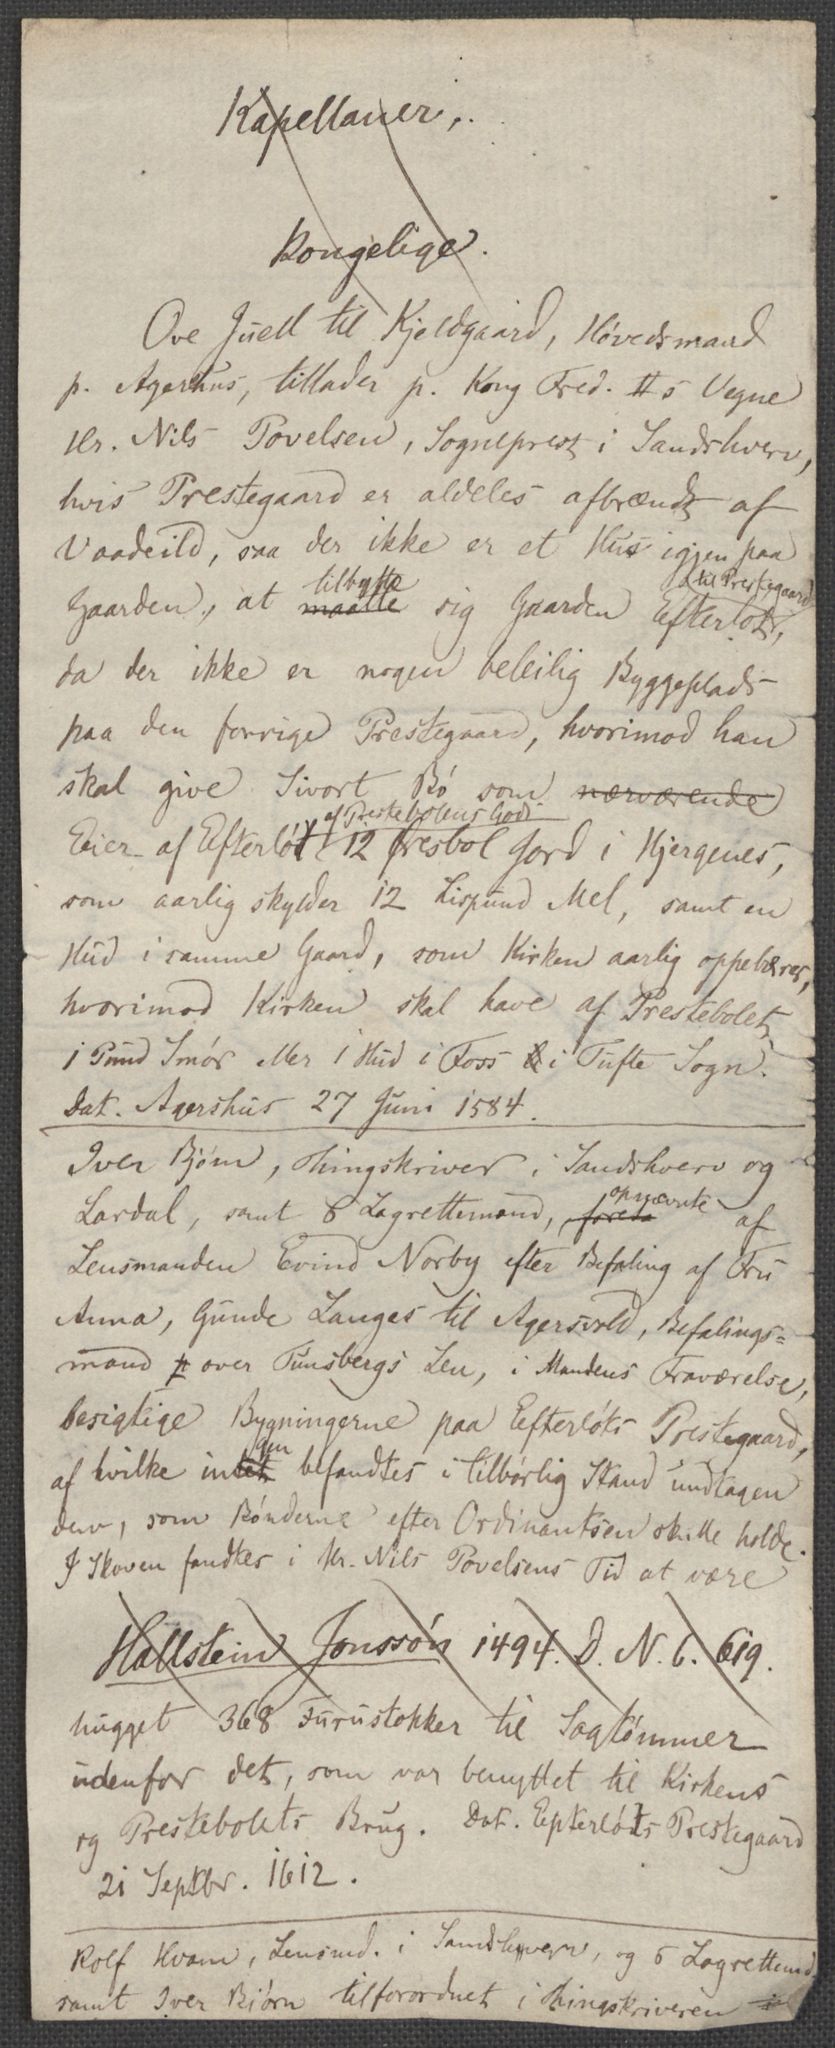 Kapellaner,.
Kongelige.
Ove Juell til Kjeldgaard, Høvedsmand
p. Agerhus, tillader p. Kong Fred. II s Vegne
Hr. Nils Povelsen, Sogneprest i Sandshverv,
hvis Prestegaard er aldeles afbrændt af
Vaadeild, saa der ikke er et Hus igjen paa
tilbytte til Prestegaard
Gaarden, at maatte sig Gaarden Efterløt,
da der ikke er nogen beleilig Byggeplads
paa den forrige Prestegaard, hvorimod han
skal give Sivort Bö som nærværende
af Prestebolens Gods
Eier af Efterløt 12 øresbol Jord i Hjergenes,
som aarlig skylder 12 Lispund Mel, samt en
Hud i samme Gaard, som Kirken aarlig oppebærer,
hvorimod Kirken skal have af Prestebolet
1 Pund Smör eller 1 Hud i Foss i Tufte Sogn.
Dat. Agershus 27 Juni 1584.
Iver Bjørn, Thingskriver i Sandshverv og
opnævnte
Lardal, samt 6 Lagrettemænd, af
Lensmanden Evind Norby efter Befaling af Fru
Anna, Gunde Langes til Agersvold, Befalings=
mand p over Tunsbergs Len, i Mandens Fraværelse,
besigtige Bygningerne paa Eefterløts Prestegaard,
gen
af hvilke intet befandtes i tilbørlig Stand undtagen
den, som Bønderne efter Ordinantsen skulle holde.
I Skoven fandtes i Hr. Nils Povelsens Tid at være
Hallstein Jonssön 1494. D. N. 6. 619.
hugget 368 Furustokker til Sagtømmer
udenfor det, som var benyttet til Kirkens
og Prestebolets Brug. Dat. Eepterløts Prestegaard
21 Septbr. 1612.
Rolf Hvam, Lensmd. i Sandshverv, og 6 Lagrettemd
samt Iver Biørn tilforordnet i Thingskriveren i